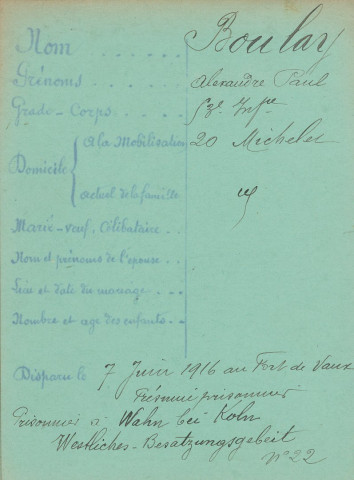 Nom ..... Boulay
Prénoms ..... Alexandre Paul
Grade - Corps ..... 53e Infrie
Domicile { A la Mobilisation 20 Michelet
Actuel de la famille id
Marié - veuf, Célibataire ..
Nom et prénoms de l'épouse ..
Lieu et date du mariage ...
Nombre et age des enfants ..
Disparu le 7 Juin 1916 au Fort de Vaux
Présumé prisonnier
Prisonnier à Wahn bei Köln
Westliches - Besatzungsgebeit
n° 22